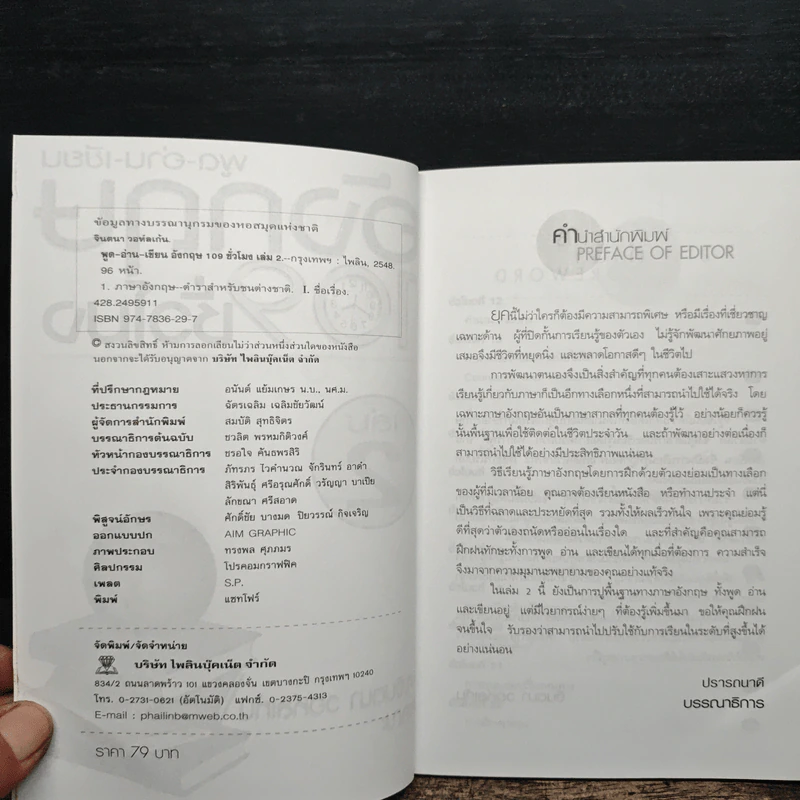 ข้อมูลทางบรรณานุกรมของหอสมุดแห่งชาติ
จินตนา วอห์ลเก้น.
พูด-อ่าน-เขียน อังกฤษ 109 ชั่วโมง เล่ม 2.--กรุงเทพฯ : ไพลิน, 2548.
96 หน้า.
1. ภาษาอังกฤษ--ตำราสำหรับชนต่างชาติ. I. ชื่อเรื่อง.
428.2495911
ISBN 974-7836-29-7
© สงวนลิขสิทธิ์ ห้ามการลอกเลียนไม่ว่าส่วนหนึ่งส่วนใดของหนังสือ
นอกจากจะได้รับอนุญาตจาก บริษัท ไพลินบุ๊คเน็ต จำกัด
ที่ปรึกษากฎหมาย อนันต์ แย้มเกษร น.บ., นศ.ม.
ประธานกรรมการ ฉัตรเฉลิม เฉลิมชัยวัฒน์
ผู้จัดการสำนักพิมพ์ สมบัติ สุทธิจิตร
บรรณาธิการต้นฉบับ ชวลิต พรหมกิติวงศ์
หัวหน้ากองบรรณาธิการ ชรอใจ คันธพรสิริ
ประจำกองบรรณาธิการ ภัทรภร ไวคำนวณ จักรินทร์ อาดำ
สิริพันธุ์ ศรีอรุณศักดิ์ วรัญญา บาเปีย
ลักขณา ศรีสอาด
พิสูจน์อักษร ศักดิ์ชัย บางมด ปิยวรรณ์ กิจเจริญ
ออกแบบปก AIM GRAPHIC
ภาพประกอบ ทรงพล ศุภภมร
ศิลปกรรม โปรคอมกราฟฟิค
เพลต S.P.
พิมพ์ แซทโฟร์
จัดพิมพ์/จัดจำหน่าย
บริษัท ไพลินบุ๊คเน็ต จำกัด
834/2 ถนนลาดพร้าว 101 แขวงคลองจั่น เขตบางกะปิ กรุงเทพฯ 10240
โทร. 0-2731-0621 (อัตโนมัติ) แฟกซ์. 0-2375-4313
E-mail : phailinb@mweb.co.th
ราคา 79 บาท
คำนำสำนักพิมพ์
PREFACE OF EDITOR
ยุคนี้ไม่ว่าใครก็ต้องมีความสามารถพิเศษ หรือมีเรื่องที่เชี่ยวชาญ
เฉพาะด้าน ผู้ที่ปิดกั้นการเรียนรู้ของตัวเอง ไม่รู้จักพัฒนาศักยภาพอยู่
เสมอจึงมีชีวิตที่หยุดนิ่ง และพลาดโอกาสดีๆ ในชีวิตไป
การพัฒนาตนเองจึงเป็นสิ่งสำคัญที่ทุกคนต้องเสาะแสวงหาการ
เรียนรู้เกี่ยวกับภาษาก็เป็นอีกทางเลือกหนึ่งที่สามารถนำไปใช้ได้จริง โดย
เฉพาะภาษาอังกฤษอันเป็นภาษาสากลที่ทุกคนต้องรู้ไว้ อย่างน้อยก็ควรรู้
นั้นพื้นฐานเพื่อใช้ติดต่อในชีวิตประจำวัน และถ้าพัฒนาอย่างต่อเนื่องก็
สามารถนำไปใช้ได้อย่างมีประสิทธิภาพแน่นอน
วิธีเรียนรู้ภาษาอังกฤษโดยการฝึกด้วยตัวเองย่อมเป็นทางเลือก
ของผู้ที่มีเวลาน้อย คุณอาจต้องเรียนหนังสือ หรือทำงานประจำ แต่นี่
เป็นวิธีที่ฉลาดและประหยัดที่สุด รวมทั้งให้ผลเร็วทันใจ เพราะคุณย่อมรู้
ดีที่สุดว่าตัวเองถนัดหรืออ่อนในเรื่องใด และที่สำคัญคือคุณสามารถ
ฝึกฝนทักษะทั้งการพูด อ่าน และเขียนได้ทุกเมื่อที่ต้องการ ความสำเร็จ
จึงมาจากความมุมานะพยายามของคุณอย่างแท้จริง
ในเล่ม 2 นี้ ยังเป็นการปูพื้นฐานทางภาษาอังกฤษ ทั้งพูด อ่าน
และเขียนอยู่ แต่มีไวยากรณ์ง่ายๆ ที่ต้องรู้เพิ่มขึ้นมา ขอให้คุณฝึกฝน
จนขึ้นใจ รับรองว่าสามารถนำไปปรับใช้กับการเรียนในระดับที่สูงขึ้นได้
อย่างแน่นอน
ปรารถนาดี
บรรณาธิการ